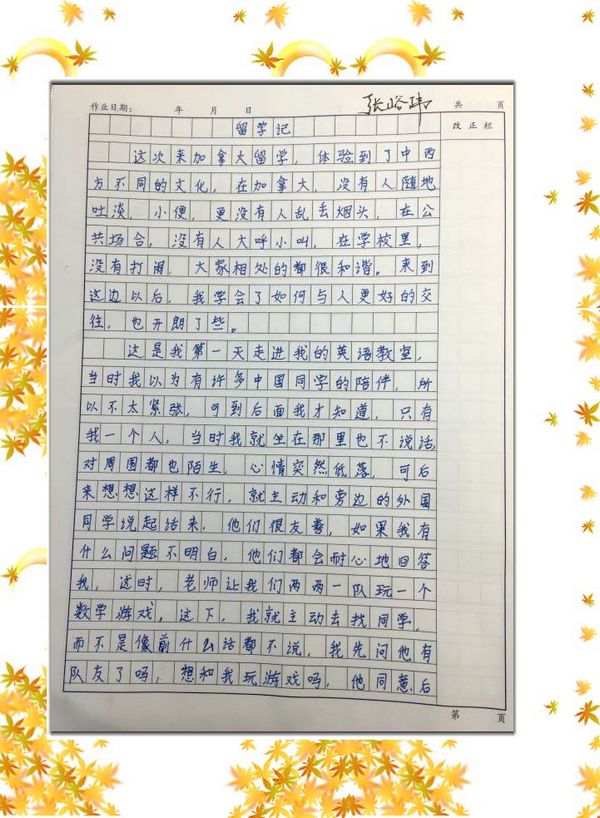 作业日期： 年 月 日 张峪玮 共 页
留学记 改正栏
这次来加拿大留学，体验到了中西
方不同的文化，在加拿大，没有人随地
吐淡，小便，更没有人乱丢烟头，在公
共场合，没有人大呼小叫，在学校里，
没有打闹，大家相处的都很和谐。来到
这边以后，我学会了如何与人更好的交
往，也开朗了些。
这是我第一天走进我的英语教室，
当时我以为有许多中国同学的陪伴，所
以不太紧张，可到后面我才知道，只有
我一个人，当时我就坐在那里也不说话，
对周围都也陌生，心情突然低落，可后
来想想这样不行，就主动和旁边的外国
同学说起话来，他们很友善，如果我有
什么问题不明白，他们都会耐心地回答
我，这时，老师让我们两两一队玩一个
数学游戏，这下，我就主动去找同学，
而不是像前什么话都不说，我先问他有
队友了吗，想和我玩游戏吗，他同意后
第 页